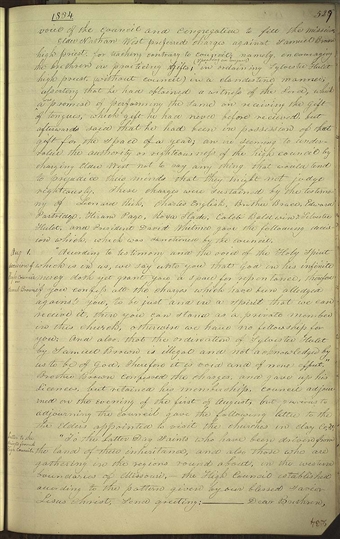 1834
329
voice of the council and Congregation to fill the mission.
Elder Nathan West preferred charges against Samuel Brown
high priest for teaching contrary to counsel, namely, in encouraging
the brethren in practicing gifts, in ordaining Sylvester Hulet
high priest without counsel, in a clandestine manner,
asserting that he had obtained a witness of the Lord, which
a promise of performing the same on receiving the gift
of tongues, which gift he had never before received, but
afterwards said that he had been in possession of that
gift for the space of a year; an in seeming to under-
value the authority or righteousness of the high council by
charging Elder West not to say any thing that would tend
to prejudice their minds that they might not judge
righteously. These charges were sustained by the testimo-
ny of Leonard Rich, Charles English, Brother Bruce, Edward
Partridge, Hiram Page, Roxa Slade, Caleb Baldwin, Sylvester
Hulet, and President David Whitmer gave the following decis-
ion which, which was sanctioned by the council.
Aug 1.
"According to testimony and the voice of the Holy Spirit
which is in us, we say unto you that God in his infinite
mercy doth yet grant you a space for repentance, therefore
if you confess all the charges which have been alleged
against you, to be just and in a spirit that we can
receive it, then you can stand as a private member
in this church, otherwise we have no fellowship for
you. And also that the ordination of Sylvester Hulet
by Samuel Brown is illegal and not acknowledged by
us to be of God, therefore it is void and of none effect."
Brother Brown confessed the charges and gave up his
license but retained his membership. Council adjourn-
ed on the evening of the first of August, but previous to
adjourning the Council gave the following letter to the
the Elders appointed to visit the churches in Clay Co.
"To the Latter Day Saints who have been driven from
the land of their inheritance, and also those who are
gathering in the regions round about, in the western
boundaries of Missouri, – the High Council established
according to the pattern given by our blessed Savior
Jesus Christ, send greeting:—— Dear Brethren,